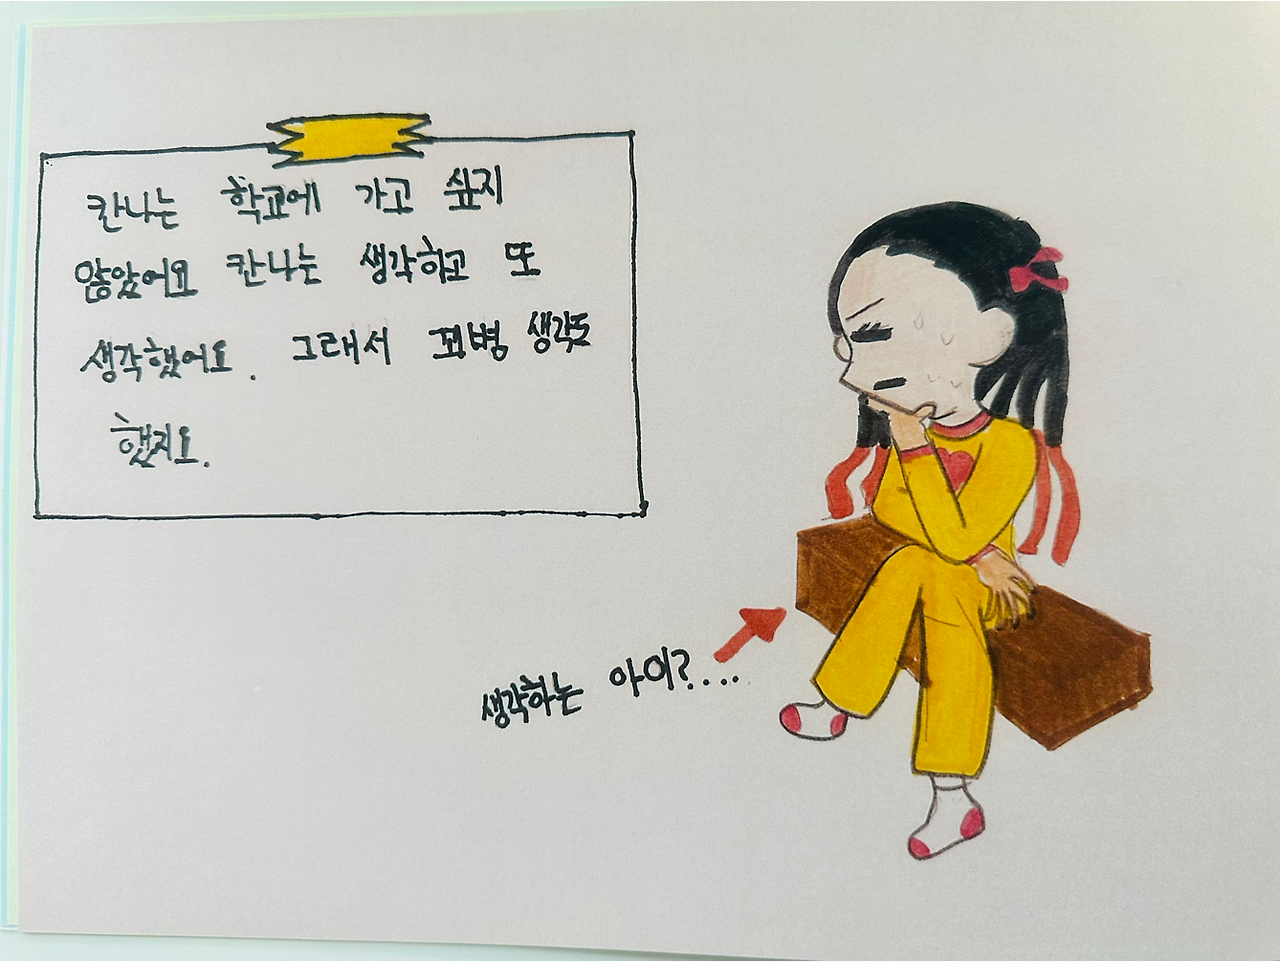 칸나는 학교에 가고 싶지
않았어요 칸나는 생각하고 또
생각했어요. 그래서 꾀병 생각도
했지요.
생각하는 아이?....